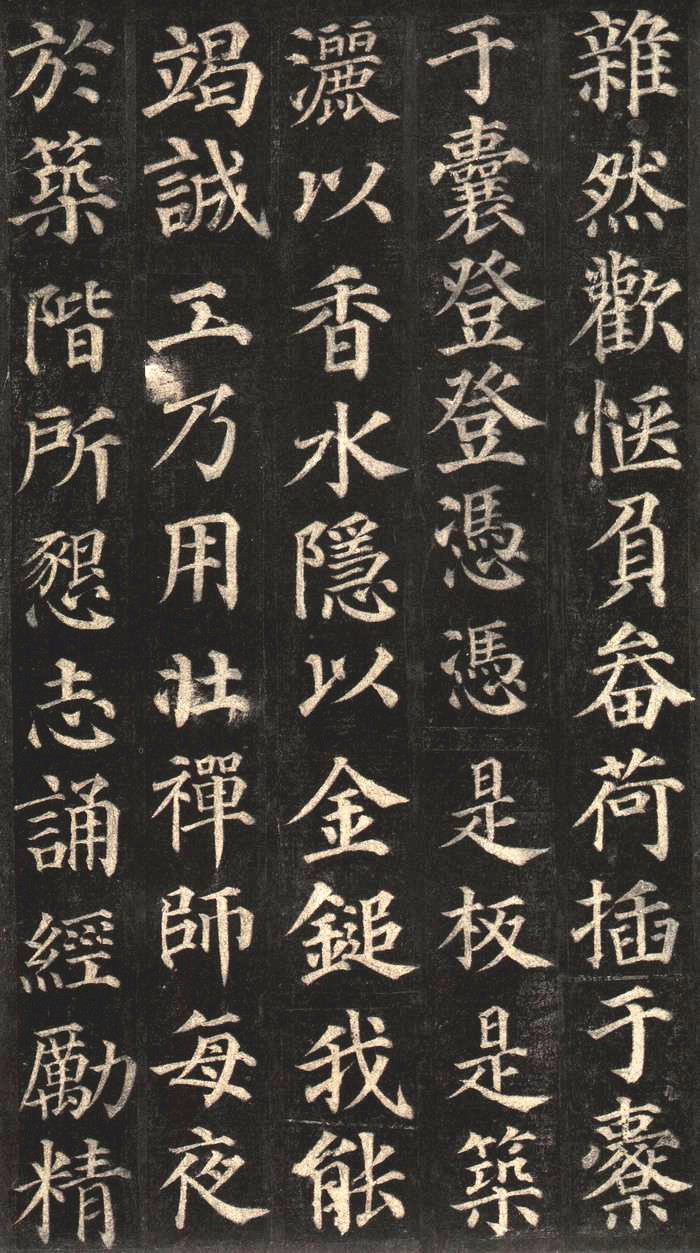 雜然歡惬負畚荷插于橐
于囊登登憑憑是板是築
灑以香水隱以金鎚我能
竭誠工乃用壯禪師每夜
於築階所懇志誦經勵精